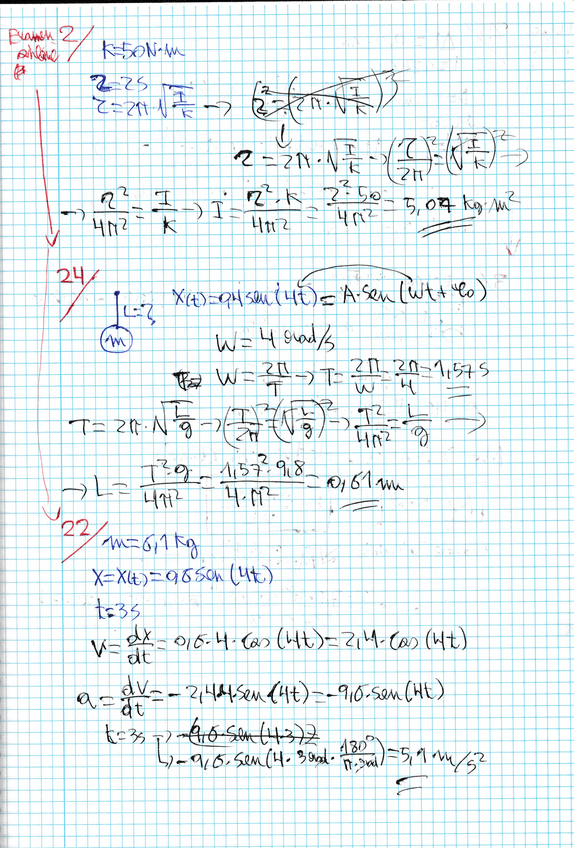 Examen 2/
K=50N·m
τ=2s
τ=2π√(I/K) →
τ=2π·√(I/K) → (τ/2π)²=(√(I/K))² →
→ τ²/4π² = I/K → I = τ²·K/4π² = 2²·50/4π² = 5,07 kg·m²
24/
X(t)=0,4 sen(4t)=A·sen(wt+φ0)
L=?
m
W=4 rad/s
W=2π/T → T=2π/W=2π/4=1,57s
T=2π·√(L/g) → (T/2π)²=(√(L/g))² → T²/4π²=L/g →
→ L=T²·g/4π²=1,57²·9,8/4·π²=0,61 m
22/
m=6,1 kg
X=X(t)=0,6 sen(4t)
t=3s
V=dx/dt=0,6·4·cos(4t)=2,4·cos(4t)
a=dv/dt=-2,4·4 sen(4t)=-9,6·sen(4t)
t=3s → -9,6·sen(4·3)
↳ -9,6·sen(4·3rad·180°/π·rad)=5,1 m/s²